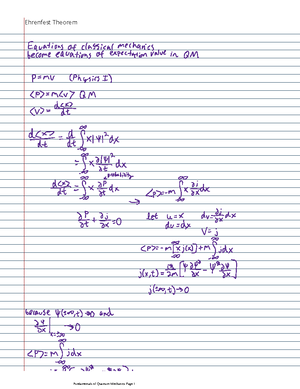 Ehrenfest Theorem
Equations of classical mechanics
become equations of expectation value in QM
p=mv (Physics I)
⟨p⟩=m⟨v⟩ QM
⟨v⟩=d⟨x⟩/dt
d⟨x⟩/dt = d/dt ∫_{-∞}^{∞} x|ψ|² dx
= ∫_{-∞}^{∞} x ∂|ψ|²/∂t dx
probability
d⟨x⟩/dt = ∫_{-∞}^{∞} x ∂P/∂t dx → ⟨p⟩=-m ∫_{-∞}^{∞} x ∂j/∂x dx
∂P/∂t + ∂j/∂x = 0 let u=x dv=∂j/∂x dx
du=dx V=j
⟨p⟩=-m[x j(x)]+m ∫_{-∞}^{∞} j dx
j(±∞,t)→0
because ψ(±∞,t)→0 and
∂ψ/∂x|_{x=±∞} →0
⟨p⟩=m ∫_{-∞}^{∞} j dx
Fundamentals of Quantum Mechanics Page 1